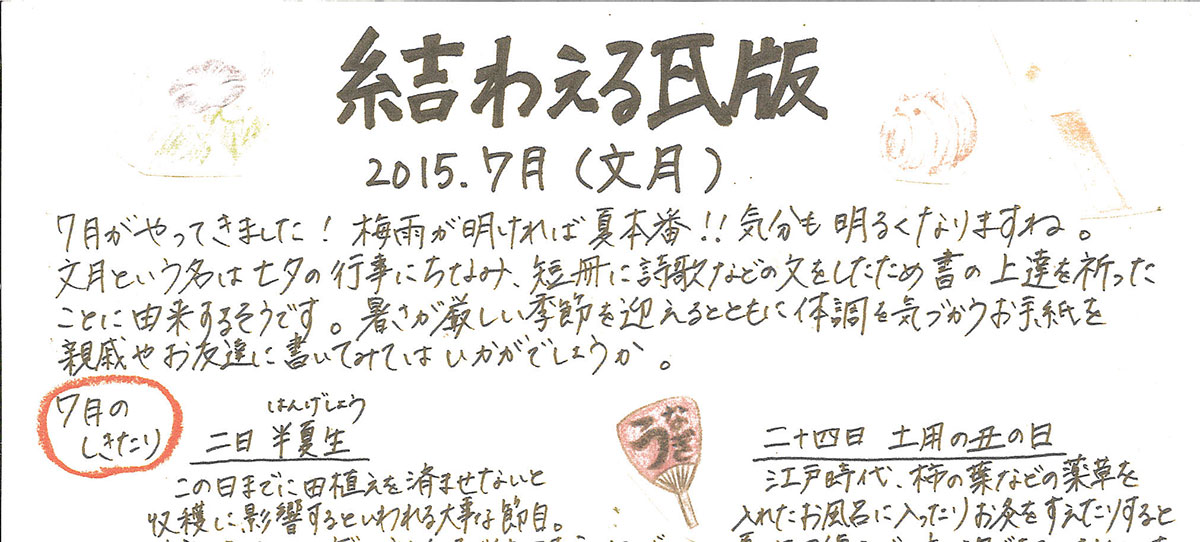 結わえる瓦版
2015.7月(文月)
7月がやってきました! 梅雨が明ければ夏本番!! 気分も明るくなりますね。
文月という名は七夕の行事にちなみ、短冊に詩歌などの文をしたため書の上達を祈った
ことに由来するそうです。暑さが厳しい季節を迎えるとともに体調を気づかうお手紙を
親戚やお友達に書いてみてはいかがでしょうか。
7月の
しきたり
はんげしょう
二日 半夏生
この日までに田植えを済ませないと
収穫に影響するといわれる大事な節目。
うなぎ
二十四日 土用の丑の日
江戸時代、柿の葉などの薬草を
入れたお風呂に入ったりお灸をすえたりすると